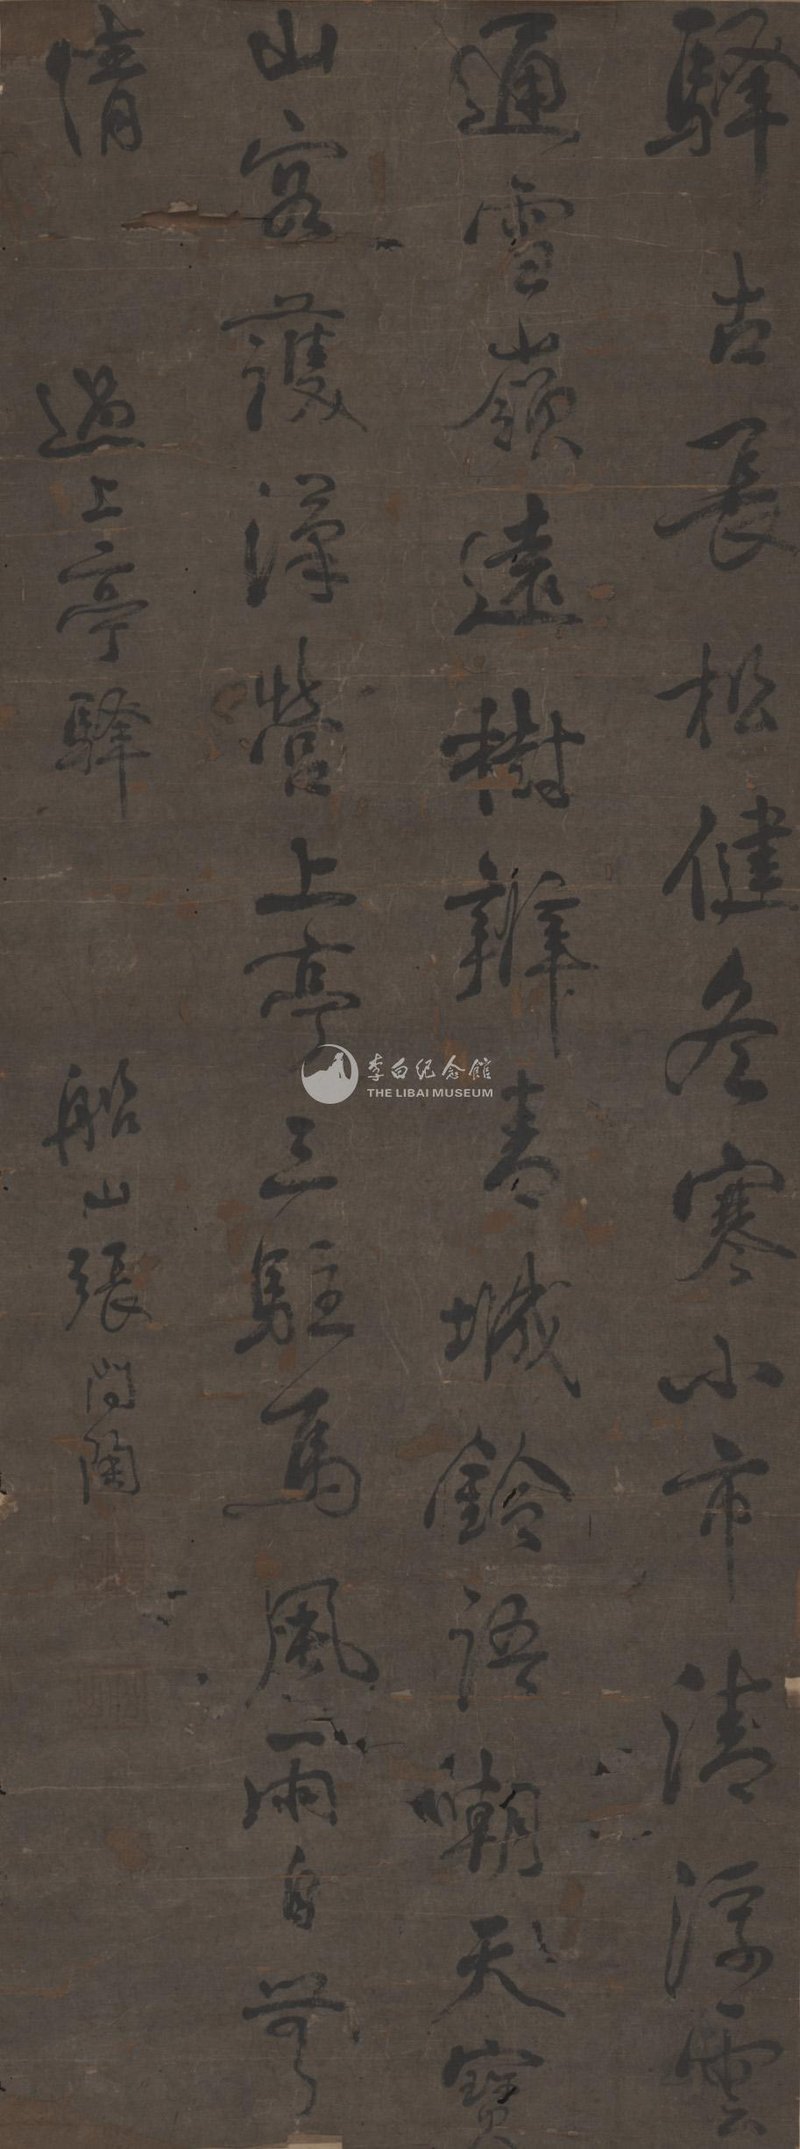 驛古長松健冬寒小市清浮雲
通雪嶺遠樹辨青城鈴語嘲天寶
山容護漢營上亭三駐馬風雨自無
情
過上亭驛
船山張問陶
李白纪念馆
THE LIBAI MUSEUM